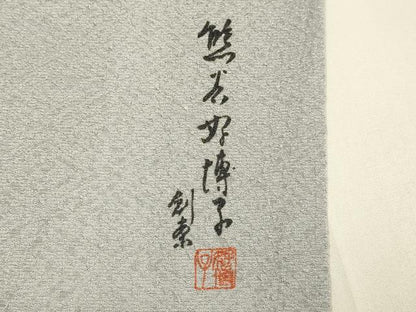 熊谷好博子
創染